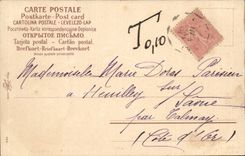 CARTE POSTALE
Postkarte - Post card
CARTOLINA POSTALE - LEVELEZŐ-LAP
Dopisnica - Karta korespondencyjna
ОТКРЫТОЕ ПИСЬМО.
Tarjeta postal - Cartão postal
Brefkort - Briefkaart - Brevkort
T 0,10
Mademoiselle Marie
à Heuilley sur
Saône
par Talmay
(Côte d'Or)